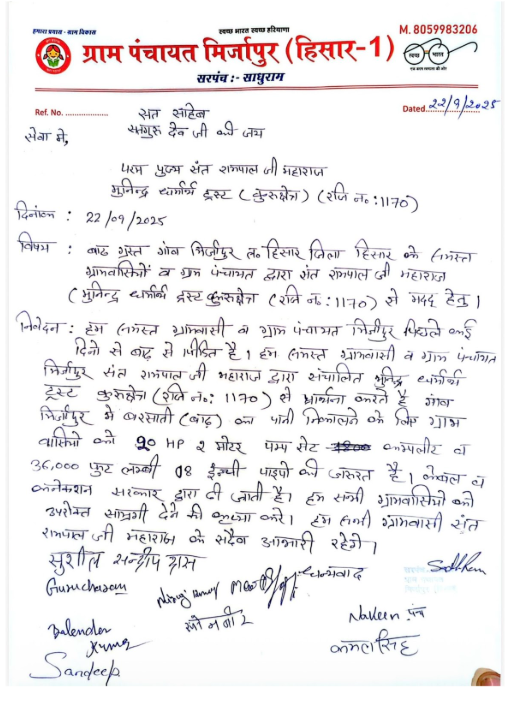 हमारा प्रयास - ग्राम विकास
स्वच्छ भारत स्वच्छ हरियाणा
M. 8059983206
ग्राम पंचायत मिर्जापुर (हिसार-1)
सरपंच :- साधुराम
स्वच्छ भारत
एक कदम स्वच्छता की ओर
Ref. No. ..................
Dated. 22/9/2025
सत साहेब
सेवा में,
सतगुरु देव जी की जय
परम पुज्य संत रामपाल जी महाराज
मुनिन्द्र धर्मार्थ ट्रस्ट (कुरुक्षेत्र) (रजि नं०:1170)
दिनांक : 22/09/2025
विषय : बाढ़ ग्रस्त गांव मिर्जापुर त० हिसार जिला हिसार के समस्त
ग्रामवासियों व ग्राम पंचायत द्वारा संत रामपाल जी महाराज
(मुनिन्द्र धर्मार्थ ट्रस्ट कुरुक्षेत्र (रजि नं०:1170) से मदद हेतु।
निवेदन : हम समस्त ग्रामवासी व ग्राम पंचायत मिर्जापुर पिछले कई
दिनो से बाढ़ से पीडित है। हम समस्त ग्रामवासी व ग्राम पंचायत
मिर्जापुर संत रामपाल जी महाराज द्वारा संचालित मुनिन्द्र धर्मार्थ
ट्रस्ट कुरुक्षेत्र (रजि नं०: 1170) से प्रार्थना करते है गांव
मिर्जापुर में बरसाती (बाढ़) का पानी निकालने के लिए ग्राम
वासियो को 20 HP 2 मोटर पम्प सेट कम्पलीट व
36,000 फुट लम्बी 08 ईन्ची पाइपो की जरुरत है। केबल व
कनेक्शन सरकार द्वारा दी जाती है। हम सभी ग्रामवासियो को
उपरोक्त सामग्री देने की कृपा करे। हम सभी ग्रामवासी संत
रामपाल जी महाराज के सदैव आभारी रहेंगे।
सुशील सन्दीप दास
धन्यवाद
Gurucharan
Niraj Kumar
Naveen पंच
Balender Kumar
कमल सिंह
Sandeep